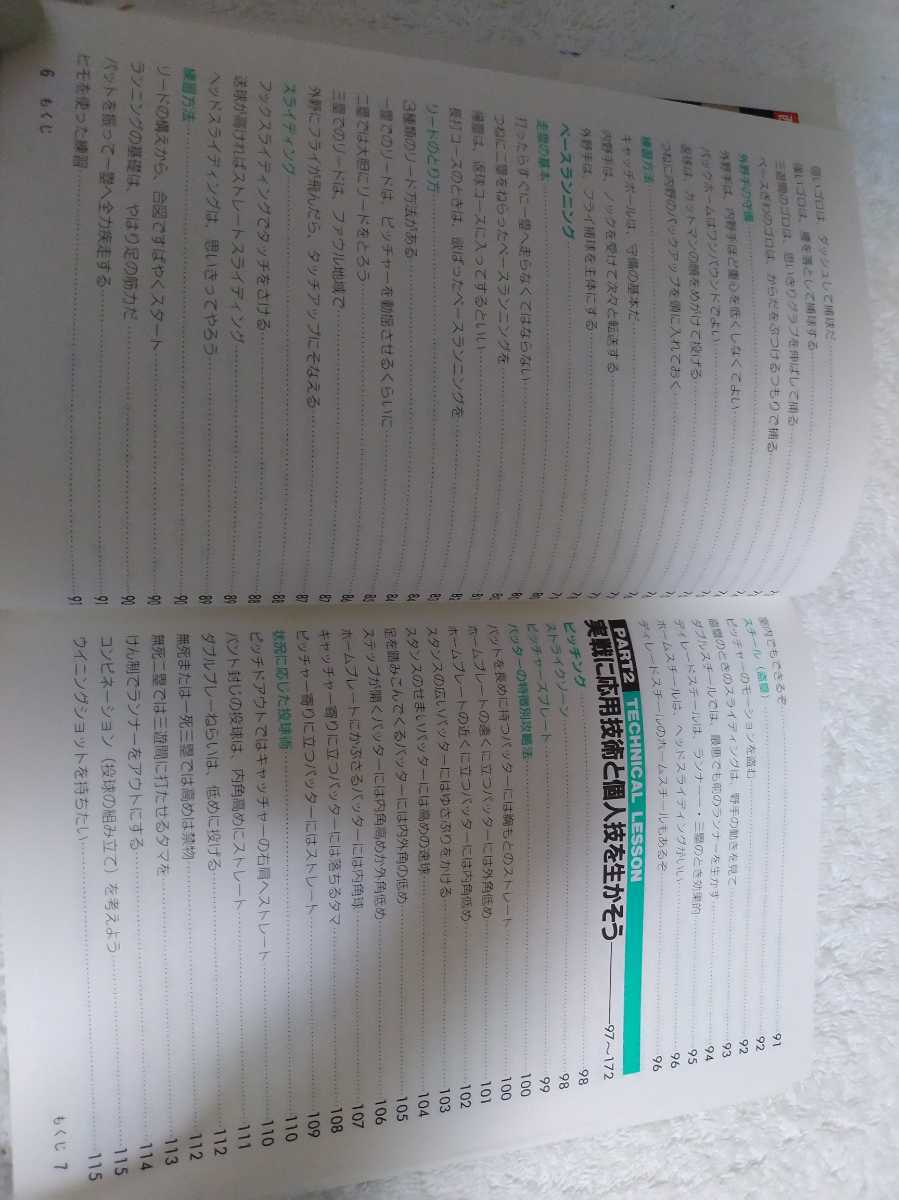 弱いゴロは、ダッシュして捕球だ
強いゴロは、腰を落として捕球する
三遊間のゴロは、思いきりグラブを伸ばして捕る
ベースぎわのゴロは、からだをぶつけるつもりで捕る
外野手の守備
外野手は、内野手ほど重心を低くしなくてよい
バックホームはワンバウンドでよい
返球は、カットマンの顔をめがけて投げる
つねに内野のバックアップを頭に入れておく
練習方法
キャッチボールは、守備の基本だ
内野手は、ノックを受けて次々と転送する
外野手は、フライ捕球を主体にする
ベースランニング
走塁の基本
打ったらすぐに一塁へ走らなくてはならない
つねに二塁をねらったベースランニングを
帰塁は、返球コースに入ってするといい
長打コースのときは、欲ばったベースランニングを
リードのとり方
3種類のリード方法がある
一塁でのリードは、ピッチャーを動揺させるくらいに
二塁では大胆にリードをとろう
三塁でのリードは、ファウル地域で
外野にフライが飛んだら、タッチアップにそなえる 87
スライディング 88
フックスライディングでタッチをさける 88
送球が高ければストレートスライディング 89
ヘッドスライディングは、思いきってやろう 89
練習方法 90
リードの構えから、合図ですばやくスタート 90
ランニングの基礎は、やはり足の筋力だ 90
バットを振って一塁へ全力疾走する 91
ヒモを使った練習 91
6 もくじ
室内でもできるぞ 91
スチール(盗塁) 92
ピッチャーのモーションを盗む 92
盗塁のときのスライディングは、野手の動きを見て 93
ダブルスチールでは、最悪でも前のランナーを生かす 94
ディレードスチールは、ランナー一・三塁のとき効果的 95
ホームスチールは、ヘッドスライディングがいい 96
ディレードスチールのホームスチールもあるぞ 96
PART2 TECHNICAL LESSON
実戦に応用技術と個人技を生かそう 97〜172
ピッチング 98
ストライクゾーン 98
ピッチャーズプレート 99
バッターの特徴別攻略法 100
バットを長めに持つバッターには胸もとのストレート 100
ホームプレートの遠くに立つバッターには外角低め 101
ホームプレートの近くに立つバッターには内角低め 102
スタンスの広いバッターにはゆさぶりをかける 103
スタンスのせまいバッターには高めの速球 104
足を踏みこんでくるバッターには内外角の低め 105
ステップが開くバッターには内角高めか外角低め 106
ホームプレートにかぶさるバッターには内角球 107
キャッチャー寄りに立つバッターには落ちるタマ 108
ピッチャー寄りに立つバッターにはストレート 109
状況に応じた投球術 110
ピッチドアウトではキャッチャーの右肩へストレート 110
バント封じの投球は、内角高めにストレート 111
ダブルプレーねらいは、低めに投げる 112
無死または一死三塁では高めは禁物 112
無死二塁では三遊間に打たせるタマを 113
けん制でランナーをアウトにする 114
コンビネーション(投球の組み立て)を考えよう 115
ウイニングショットを持ちたい 115
もくじ 7